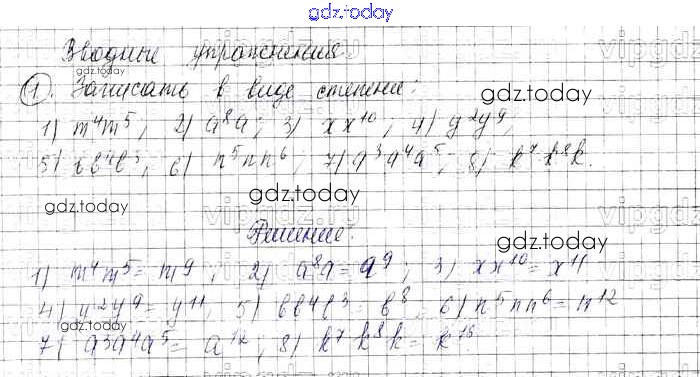 gdz.today
Вводные упражнения
gdz.today
1. Записать в виде степени:
gdz.today
1) m⁴m⁵; 2) a⁸a; 3) xx¹⁰; 4) y²y⁹;
5) bb⁴b³; 6) n⁵nn⁶; 7) a³a⁴a⁵; 8) k⁷k⁸k.
gdz.today
gdz.today
Решение:
gdz.today
1) m⁴m⁵ = m⁹; 2) a⁸a = a⁹; 3) xx¹⁰ = x¹¹
4) y²y⁹ = y¹¹, 5) bb⁴b³ = b⁸, 6) n⁵nn⁶ = n¹²
gdz.today
7) a³a⁴a⁵ = a¹²; 8) k⁷k⁸k = k¹⁶.